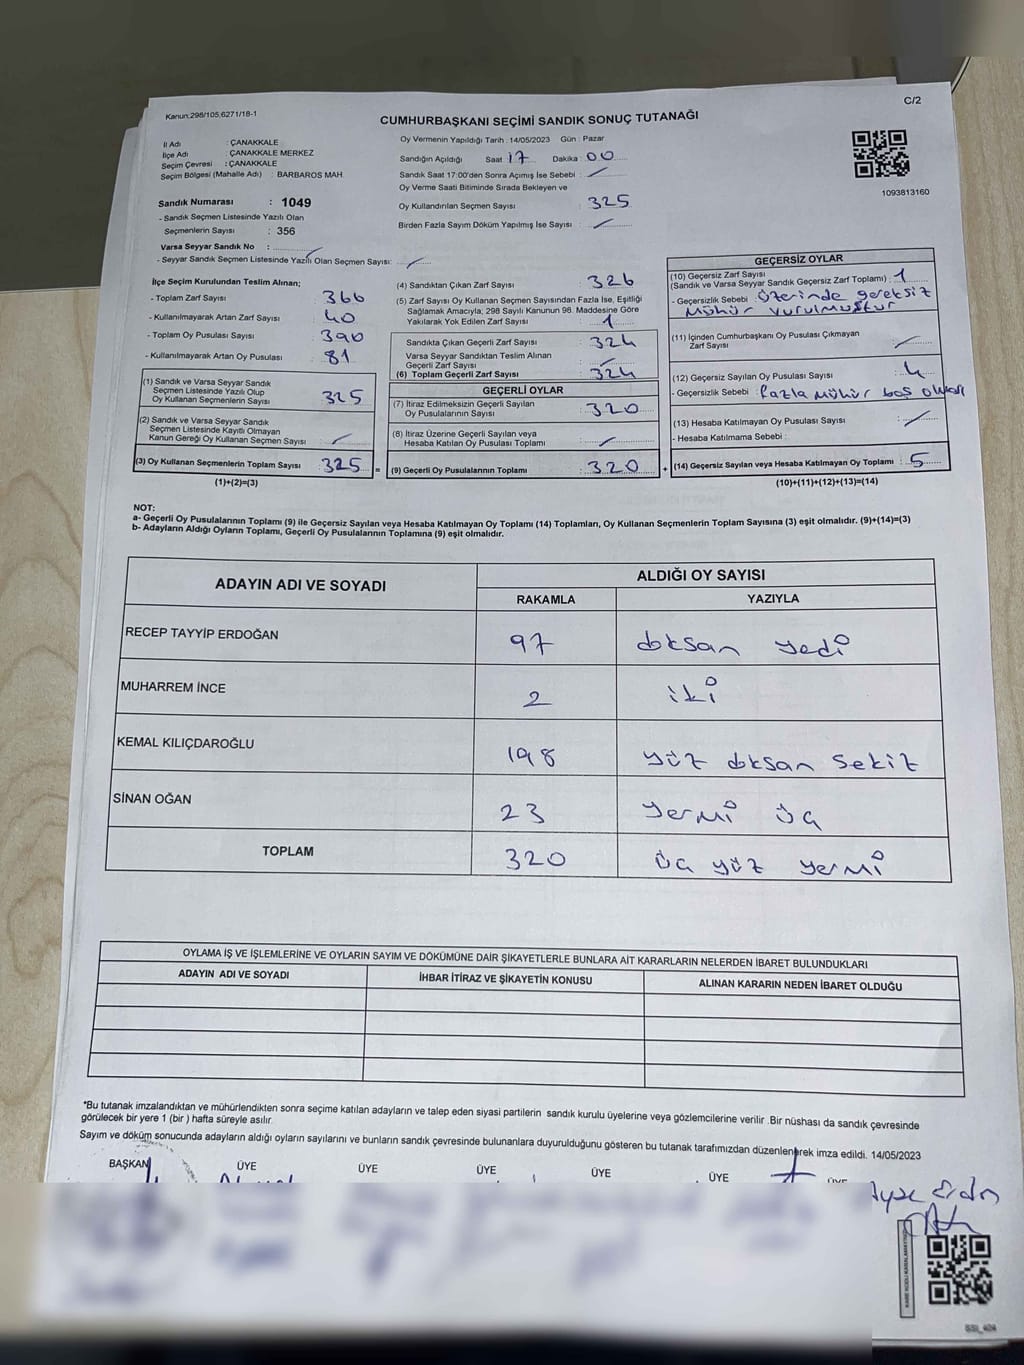 Kanun:298/105,6271/18-1
C/2
CUMHURBAŞKANI SEÇİMİ SANDIK SONUÇ TUTANAĞI
İl Adı : ÇANAKKALE
İlçe Adı : ÇANAKKALE MERKEZ
Seçim Çevresi : ÇANAKKALE
Seçim Bölgesi (Mahalle Adı) : BARBAROS MAH.
Sandık Numarası : 1049
- Sandık Seçmen Listesinde Yazılı Olan
Seçmenlerin Sayısı : 356
Varsa Seyyar Sandık No :
- Seyyar Sandık Seçmen Listesinde Yazılı Olan Seçmen Sayısı:
Oy Vermenin Yapıldığı Tarih : 14/05/2023 Gün : Pazar
Sandığın Açıldığı Saat 17 Dakika 00
Sandık Saat 17:00'den Sonra Açımış İse Sebebi :
Oy Verme Saati Bitiminde Sırada Bekleyen ve
Oy Kullandırılan Seçmen Sayısı : 325
Birden Fazla Sayım Döküm Yapılmış İse Sayısı :
1093813160
İlçe Seçim Kurulundan Teslim Alınan;
- Toplam Zarf Sayısı : 366
- Kullanılmayarak Artan Zarf Sayısı : 40
- Toplam Oy Pusulası Sayısı : 390
- Kullanılmayarak Artan Oy Pusulası : 81
(1) Sandık ve Varsa Seyyar Sandık
Seçmen Listesinde Yazılı Olup
Oy Kullanan Seçmenlerin Sayısı : 325
(2) Sandık ve Varsa Seyyar Sandık
Seçmen Listesinde Kayıtlı Olmayan
Kanun Gereği Oy Kullanan Seçmen Sayısı :
(3) Oy Kullanan Seçmenlerin Toplam Sayısı : 325 =
(1)+(2)=(3)
(4) Sandıktan Çıkan Zarf Sayısı : 326
(5) Zarf Sayısı Oy Kullanan Seçmen Sayısından Fazla İse, Eşitliği
Sağlamak Amacıyla; 298 Sayılı Kanunun 98. Maddesine Göre
Yakılarak Yok Edilen Zarf Sayısı : 1
Sandıkta Çıkan Geçerli Zarf Sayısı : 324
Varsa Seyyar Sandıktan Teslim Alınan
Geçerli Zarf Sayısı :
(6) Toplam Geçerli Zarf Sayısı : 324
GEÇERLİ OYLAR
(7) İtiraz Edilmeksizin Geçerli Sayılan
Oy Pusulalarının Sayısı : 320
(8) İtiraz Üzerine Geçerli Sayılan veya
Hesaba Katılan Oy Pusulası Toplamı :
(9) Geçerli Oy Pusulalarının Toplamı : 320 +
GEÇERSİZ OYLAR
(10) Geçersiz Zarf Sayısı
(Sandık ve Varsa Seyyar Sandık Geçersiz Zarf Toplamı) : 1
- Geçersizlik Sebebi : Üzerinde gereksiz
mühür vurulmuştur
(11) İçinden Cumhurbaşkanı Oy Pusulası Çıkmayan
Zarf Sayısı :
(12) Geçersiz Sayılan Oy Pusulası Sayısı : 4
- Geçersizlik Sebebi : fazla mühür boş
(13) Hesaba Katılmayan Oy Pusulası Sayısı :
- Hesaba Katılmama Sebebi :
(14) Geçersiz Sayılan veya Hesaba Katılmayan Oy Toplamı : 5
(10)+(11)+(12)+(13)=(14)
NOT:
a- Geçerli Oy Pusulalarının Toplamı (9) ile Geçersiz Sayılan veya Hesaba Katılmayan Oy Toplamı (14) Toplamları, Oy Kullanan Seçmenlerin Toplam Sayısına (3) eşit olmalıdır. (9)+(14)=(3)
b- Adayların Aldığı Oyların Toplamı, Geçerli Oy Pusulalarının Toplamına (9) eşit olmalıdır.
ADAYIN ADI VE SOYADI
ALDIĞI OY SAYISI
RAKAMLA YAZIYLA
RECEP TAYYİP ERDOĞAN 97 doksan yedi
MUHARREM İNCE 2 iki
KEMAL KILIÇDAROĞLU 198 yüz doksan sekiz
SİNAN OĞAN 23 yermi üç
TOPLAM 320 üç yüz yermi
OYLAMA İŞ VE İŞLEMLERİNE VE OYLARIN SAYIM VE DÖKÜMÜNE DAİR ŞİKAYETLERLE BUNLARA AİT KARARLARIN NELERDEN İBARET BULUNDUKLARI
ADAYIN ADI VE SOYADI İHBAR İTİRAZ VE ŞİKAYETİN KONUSU ALINAN KARARIN NEDEN İBARET OLDUĞU
*Bu tutanak imzalandıktan ve mühürlendikten sonra seçime katılan adayların ve talep eden siyasi partilerin sandık kurulu üyelerine veya gözlemcilerine verilir. Bir nüshası da sandık çevresinde
görülecek bir yere 1 (bir ) hafta süreyle asılır.
Sayım ve döküm sonucunda adayların aldığı oyların sayılarını ve bunların sandık çevresinde bulunanlara duyurulduğunu gösteren bu tutanak tarafımızdan düzenlenerek imza edildi. 14/05/2023
BAŞKAN ÜYE ÜYE ÜYE ÜYE ÜYE